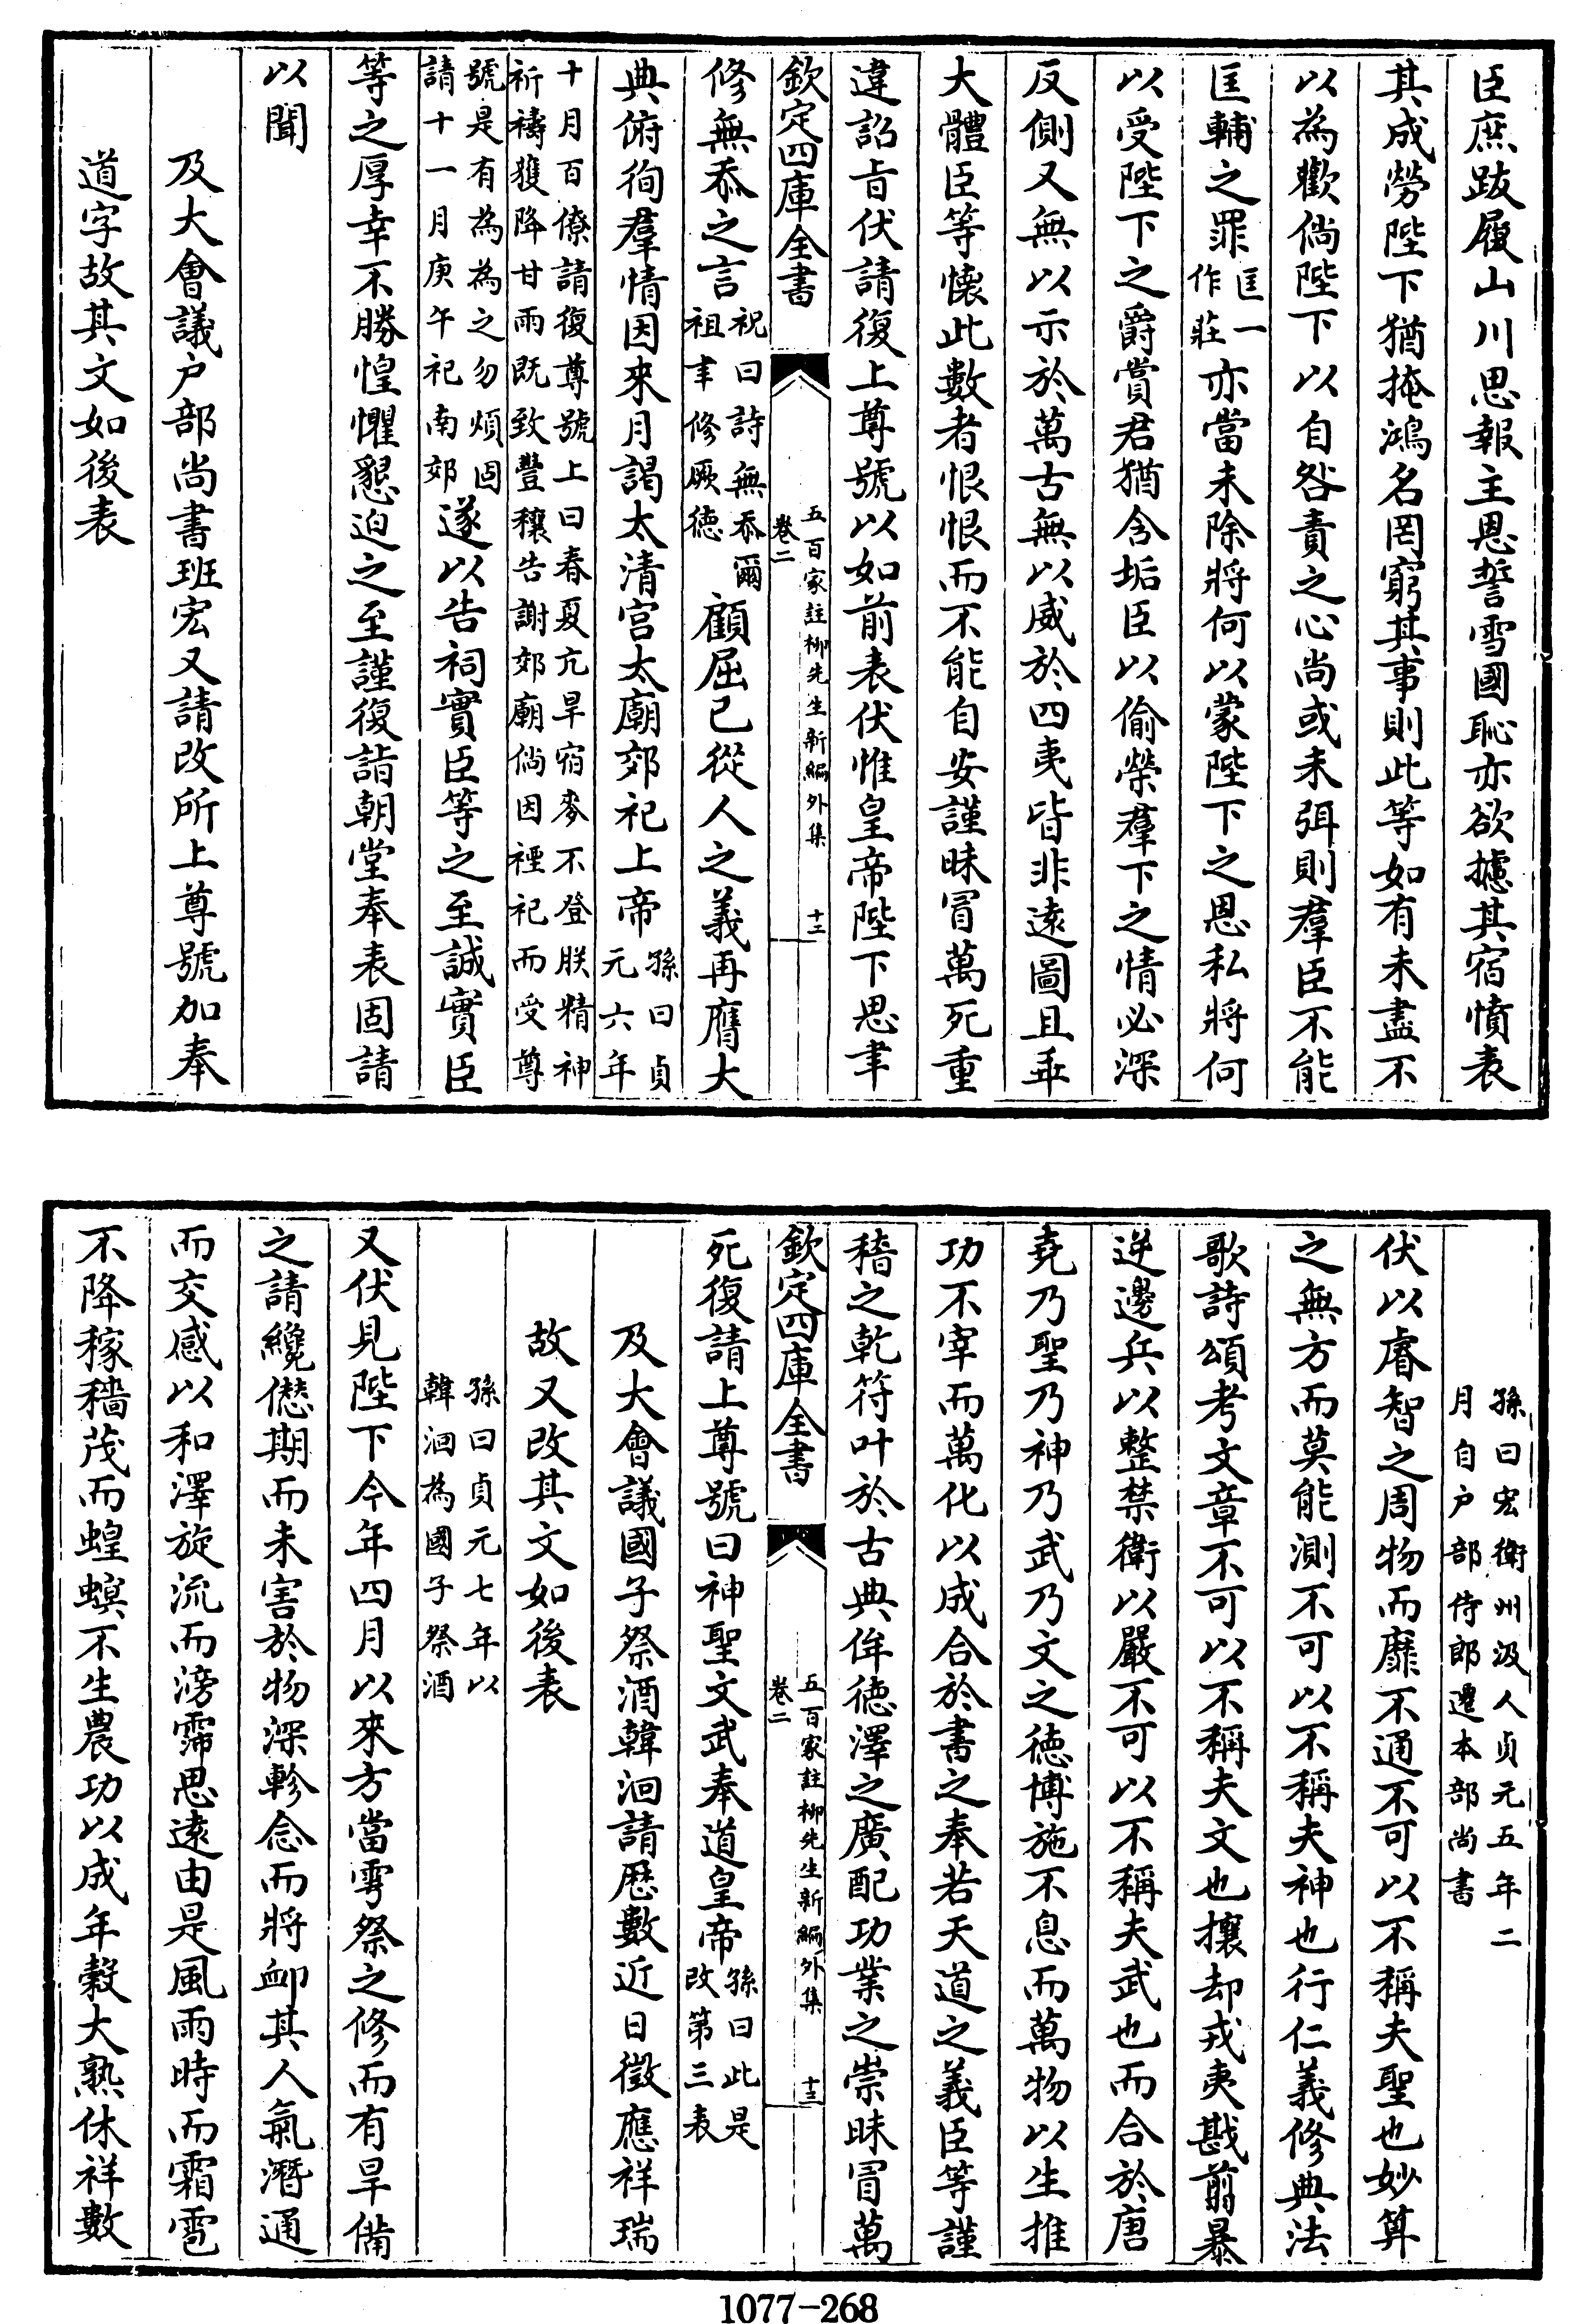 臣庶跋履山川思報主恩誓雪國恥亦欲攄其宿憤表
其成勞陛下猶掩鴻名罔窮其事則此等如有未盡不
以為歡倘陛下以自咎責之心尚或未弭則羣臣不能
匡輔之罪匡一作莊亦當未除將何以蒙陛下之恩私將何
以受陛下之爵賞君猶含垢臣以偷榮羣下之情必深
反側又無以示於萬古無以威於四夷皆非遠圖且乖
大體臣等懷此數者恨恨而不能自安謹昧冒萬死重
違詔旨伏請復上尊號以如前表伏惟皇帝陛下思聿
欽定四庫全書
五百家註柳先生新編外集
卷二
十二
修無忝之言祝曰詩無忝爾祖聿修厥德顧屈已從人之義再膺大
典俯徇羣情因來月謁太清宮太廟郊祀上帝孫曰貞元六年
十月百僚請復尊號上曰春夏亢旱宿麥不登朕精神
祈禱獲降甘雨既致豐穰告謝郊廟倘因禋祀而受尊
號是有為為之勿煩固請十一月庚午祀南郊遂以告祠實臣等之至誠實臣
等之厚幸不勝惶懼懇迫之至謹復詣朝堂奉表固請
以聞
及大會議户部尚書班宏又請改所上尊號加奉
道字故其文如後表
孫曰宏衛州汲人貞元五年二
月自户部侍郎遷本部尚書
伏以睿智之周物而靡不通不可以不稱夫聖也妙算
之無方而莫能測不可以不稱夫神也行仁義修典法
歌詩頌考文章不可以不稱夫文也攘却戎夷戡翦暴
逆邊兵以整禁衛以嚴不可以不稱夫武也而合於唐
堯乃聖乃神乃武乃文之德博施不息而萬物以生推
功不宰而萬化以成合於書之奉若天道之義臣等謹
稽之乾符叶於古典侔德澤之廣配功業之崇昧冒萬
欽定四庫全書
五百家註柳先生新編外集
卷二
十三
死復請上尊號曰神聖文武奉道皇帝孫曰此是改第三表
及大會議國子祭酒韓洄請厯數近日徵應祥瑞
故又改其文如後表
孫曰貞元七年以
韓洄為國子祭酒
又伏見陛下今年四月以來方當雩祭之修而有旱備
之請纔僁期而未害於物深軫念而將卹其人氣潛通
而交感以和澤旋流而滂霈思遠由是風雨時而霜雹
不降稼穡茂而蝗螟不生農功以成年穀大熟休祥數
1077-268